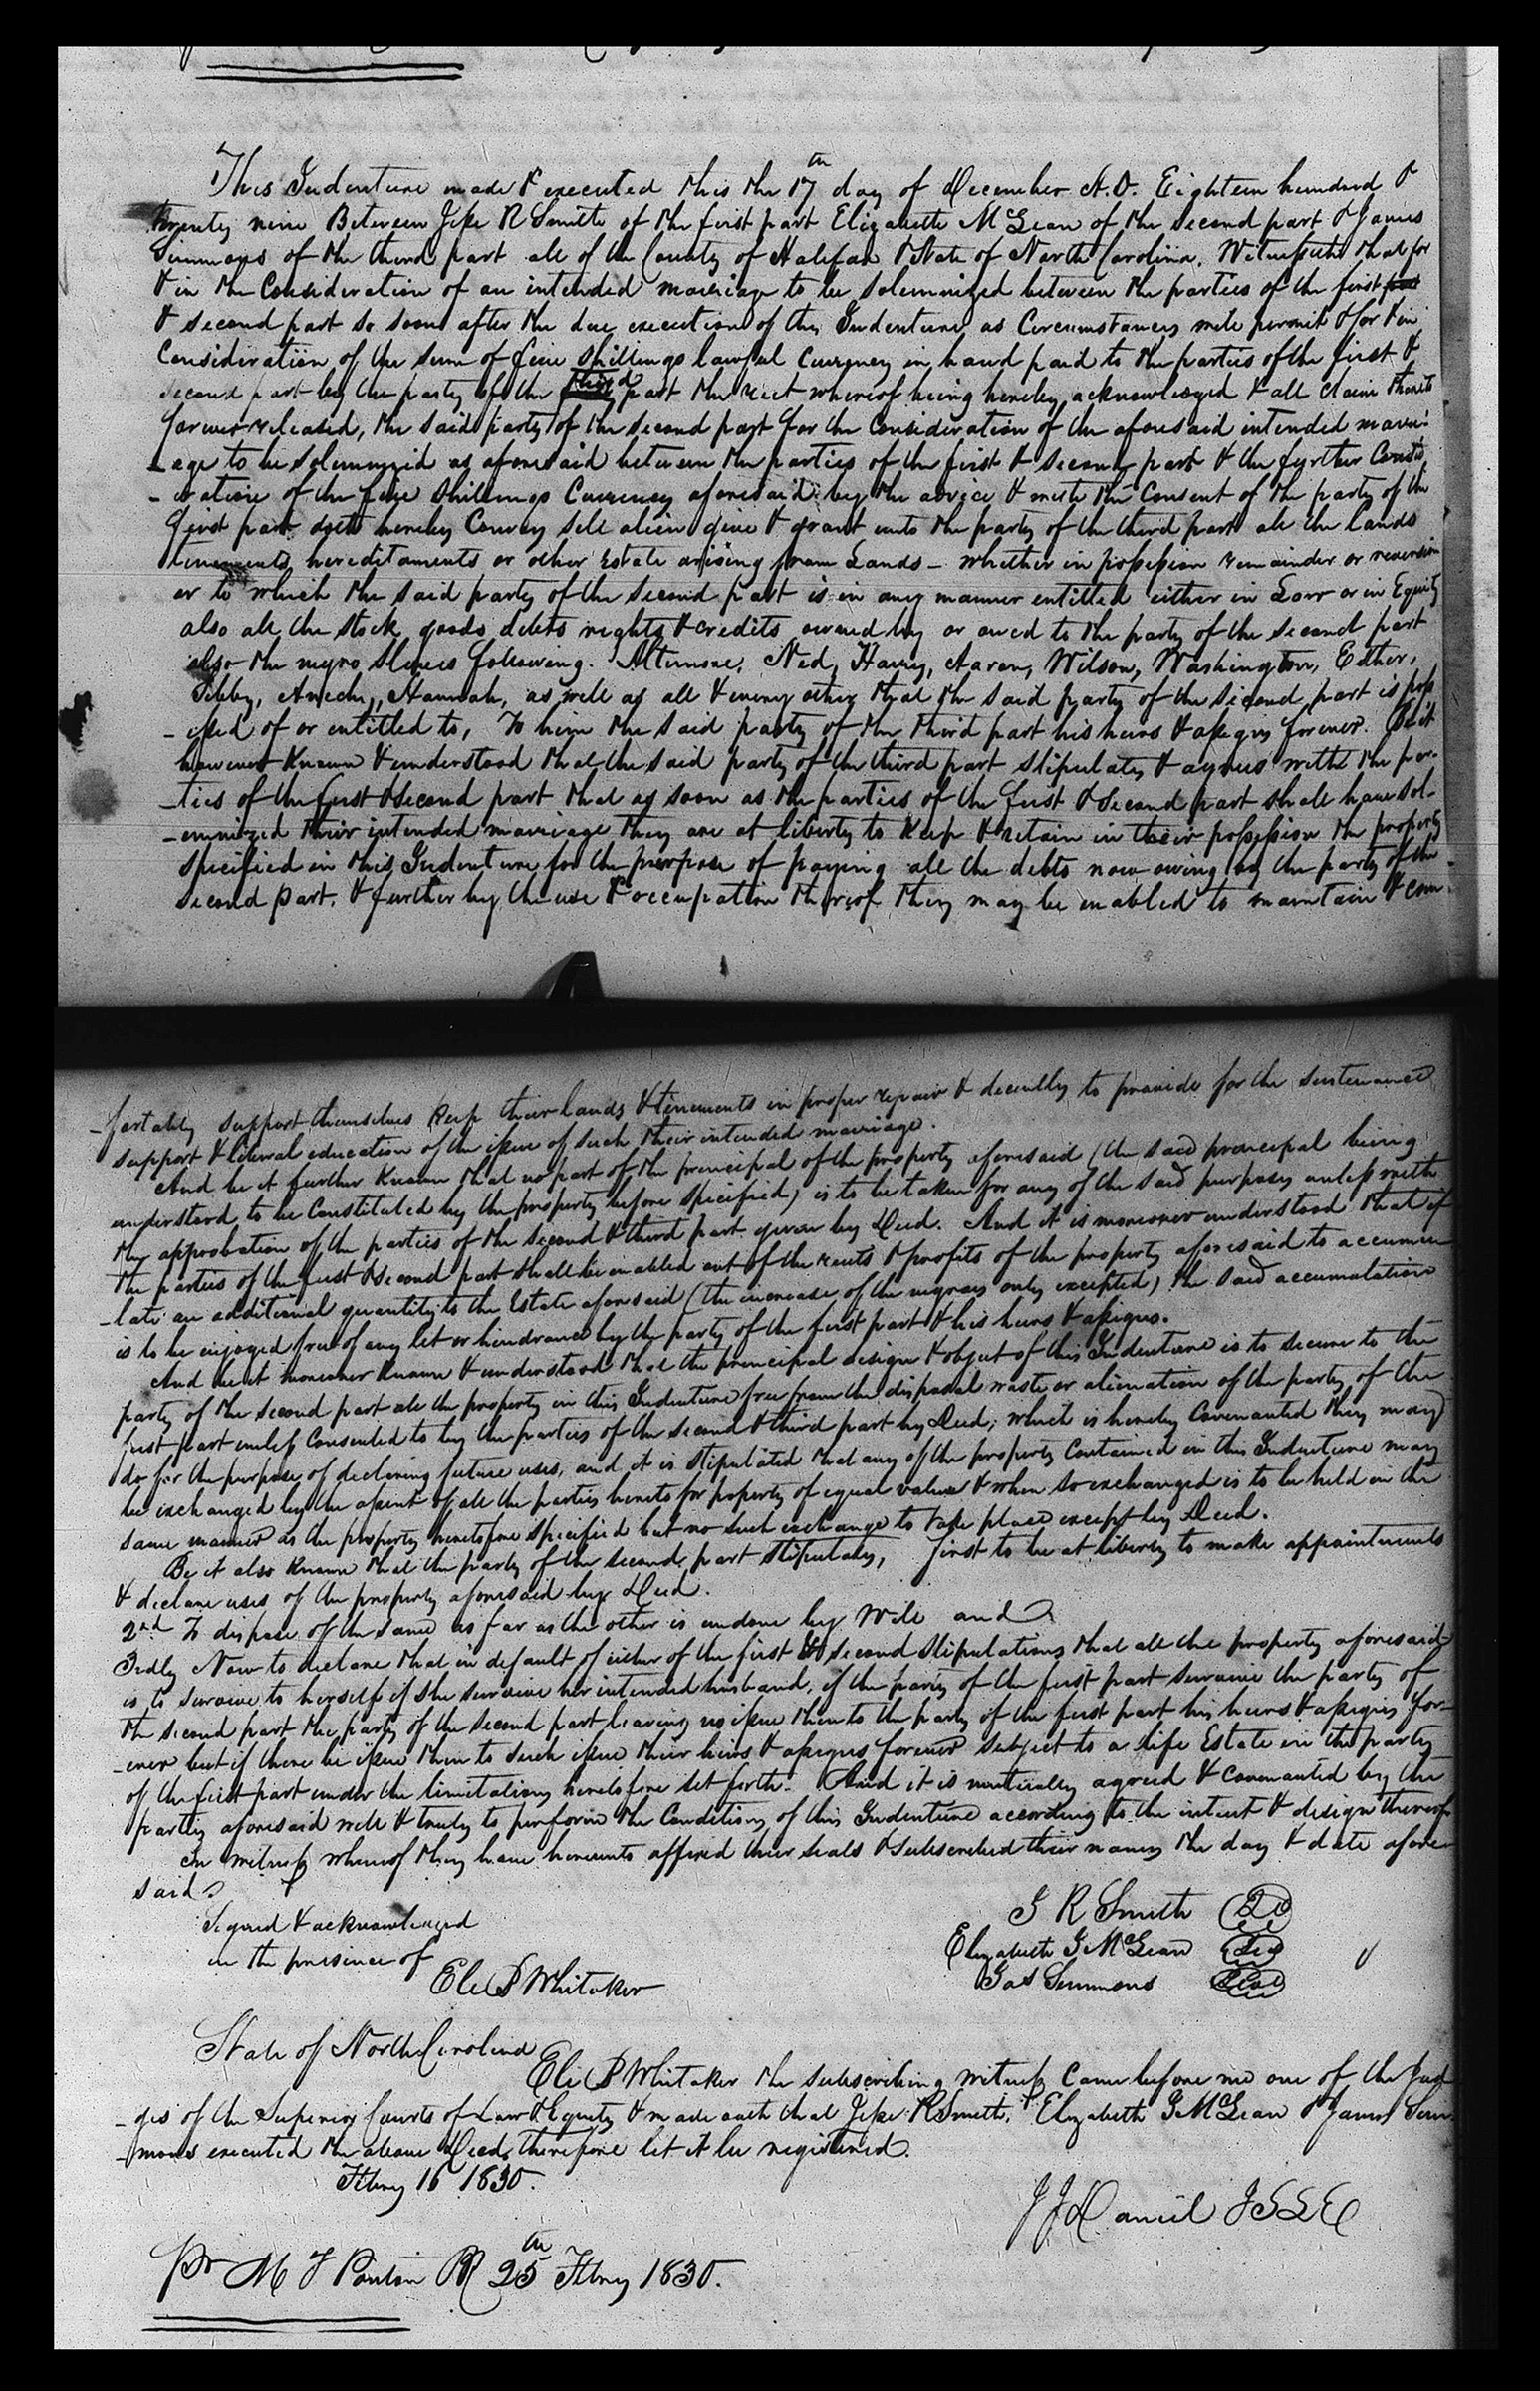 This Indenture made & executed this the 17th day of December A.D. Eighteen hundred &
twenty nine Between Jesse R Smith of the first part Elizabeth McLean of the second part & James
Simmons of the third part all of the County of Halifax & State of North Carolina. Witnesseth that for
& in the Consideration of an intended marriage to be solemnized between the parties of the first part
& second part so soon after the due execution of this Indenture as Circumstances will permit & for & in
Consideration of the sum of five shillings lawful Currency in hand paid to the parties of the first &
second part by the party of the third part the rect whereof being hereby acknowledged & all claim thereto
forever released, the said party of the second part for the Consideration of the aforesaid intended marri-
-age to be solemnized as aforesaid between the parties of the first & second part & the further Consid-
-eration of the five shillings Currency aforesaid by the advice & with the Consent of the party of the
first part doth hereby Convey sell alien give & grant unto the party of the third part all the lands
tenements, hereditaments or other Estate arising from Lands - whether in possession remainder or reversion
or to which the said party of the second part is in any manner entitled either in Law or in Equity
also all the stock goods debts rights & credits owned by or owed to the party of the second part
also the negro slaves following. Altimore, Ned, Harry, Aaron, Wilson, Washington, Esther,
Tebby, Hannah, as well as all & every other that the said party of the second part is poss
-essed of or entitled to, To him the said party of the third part his heirs & assigns forever. Be it
however Known & understood that the said party of the third part stipulates & agrees with the par-
-ties of the first & second part that as soon as the parties of the first & second part shall have sol-
-emnized their intended marriage they are at liberty to Keep & retain in their possession the property
specified in this Indenture for the purpose of paying all the debts now owing by the party of the
second part. & further by the use & occupation thereof they may be enabled to maintain & com-
-fortably support themselves Keep their lands & tenements in proper repair & decently to provide for the sustenance
support & liberal education of the issue of such their intended marriage.
And be it further Known that no part of the principal of the property aforesaid (the said principal being
understood to be Constituted by the property before specified) is to be taken for any of the said purposes unless with
the approbation of the parties of the second & third part given by Deed. And it is moreover understood that if
the parties of the first & second part shall be enabled out of the rents & profits of the property aforesaid to accumu
-late an additional quantity to the Estate aforesaid (the increase of the negroes only excepted) the said accumulation
is to be enjoyed free of any let or hindrance by the party of the first part & his heirs & assigns.
And be it moreover Known & understood that the principal design & object of this Indenture is to secure to the
party of the second part all the property in this Indenture free from the disposal waste or alienation of the party of the
first part unless Consented to by the parties of the second & third part by Deed; which is hereby Covenanted they may
do for the purpose of declaring future uses, and it is stipulated that any of the property Contained in this Indenture may
be exchanged by the assent of all the parties hereto for property of equal value & when so exchanged is to be held in the
same manner as the property heretofore specified but no such exchange to take place except by Deed.
Be it also Known that the party of the second part stipulates, first to be at liberty to make appointments
& declare uses of the property aforesaid by Deed.
2nd To dispose of the same as far as the other is undone by Will and
3rdly Now to declare that in default of either of the first & second stipulations that all the property aforesaid
is to survive to herself if she survive her intended husband, if the party of the first part survive the party of
the second part the party of the second part leaving no issue then to the party of the first part his heirs & assigns for-
-ever but if there be issue then to such issue their heirs & assigns forever subject to a life Estate in the party
of the first part under the limitations heretofore set forth. And it is mutually agreed & Covenanted by the
parties aforesaid well & truly to perform the Conditions of this Indenture according to the intent & design thereof
In witness whereof they have hereunto affixed their seals & subscribed their names the day & date afore-
said
Signed & acknowledged
in the presence of
Eli B Whitaker
J R Smith
Elizabeth G McLean
Jas Simmons
State of North Carolina
Eli B Whitaker the subscribing witness Came before me one of the Jud
-ges of the Superior Courts of Law & Equity & made oath that Jesse R Smith, Elizabeth G McLean & James Sim
-mons executed the above Deed, therefore let it be registered.
Febry 16 1830.
J J Daniel JSLE
Pr M F Ponton PR 25th Febry 1830.